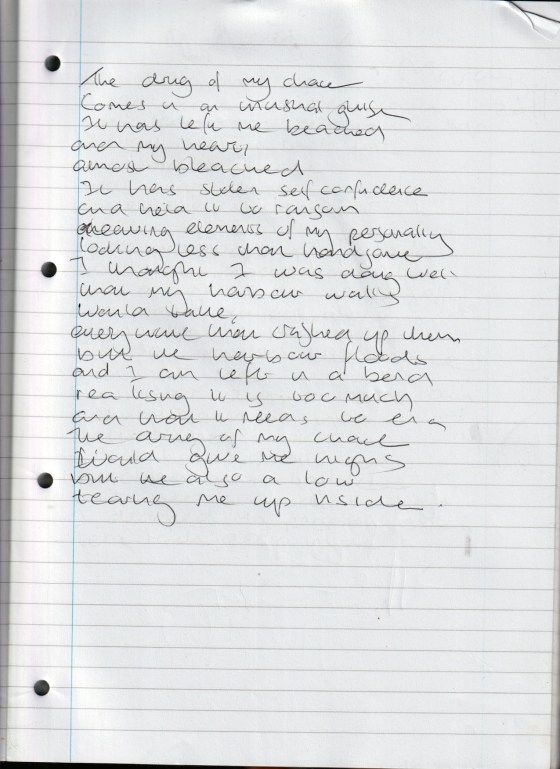 The drug of my choice
Comes in an unusual guise
It has left me beached
and my heart,
almost bleached
It has stolen self confidence
and held it to ransom
leaving elements of my personality
looking less than handsome
I thought I was doing well
that my harbour walls
would take,
every wave that crashed up them
but the harbour floods
and I am left in a bend
realising it is too much
and that it needs to end
the drug of my choice
Would give me highs
but the also a low
tearing me up inside.